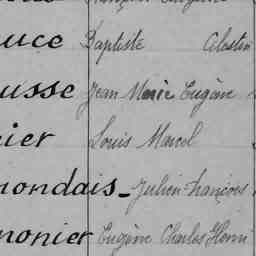 uce Baptiste Celestin
usse Jean Marie Eugène
ier Louis Marcel
nondais Julien François
nonier Eugène Charles Henri